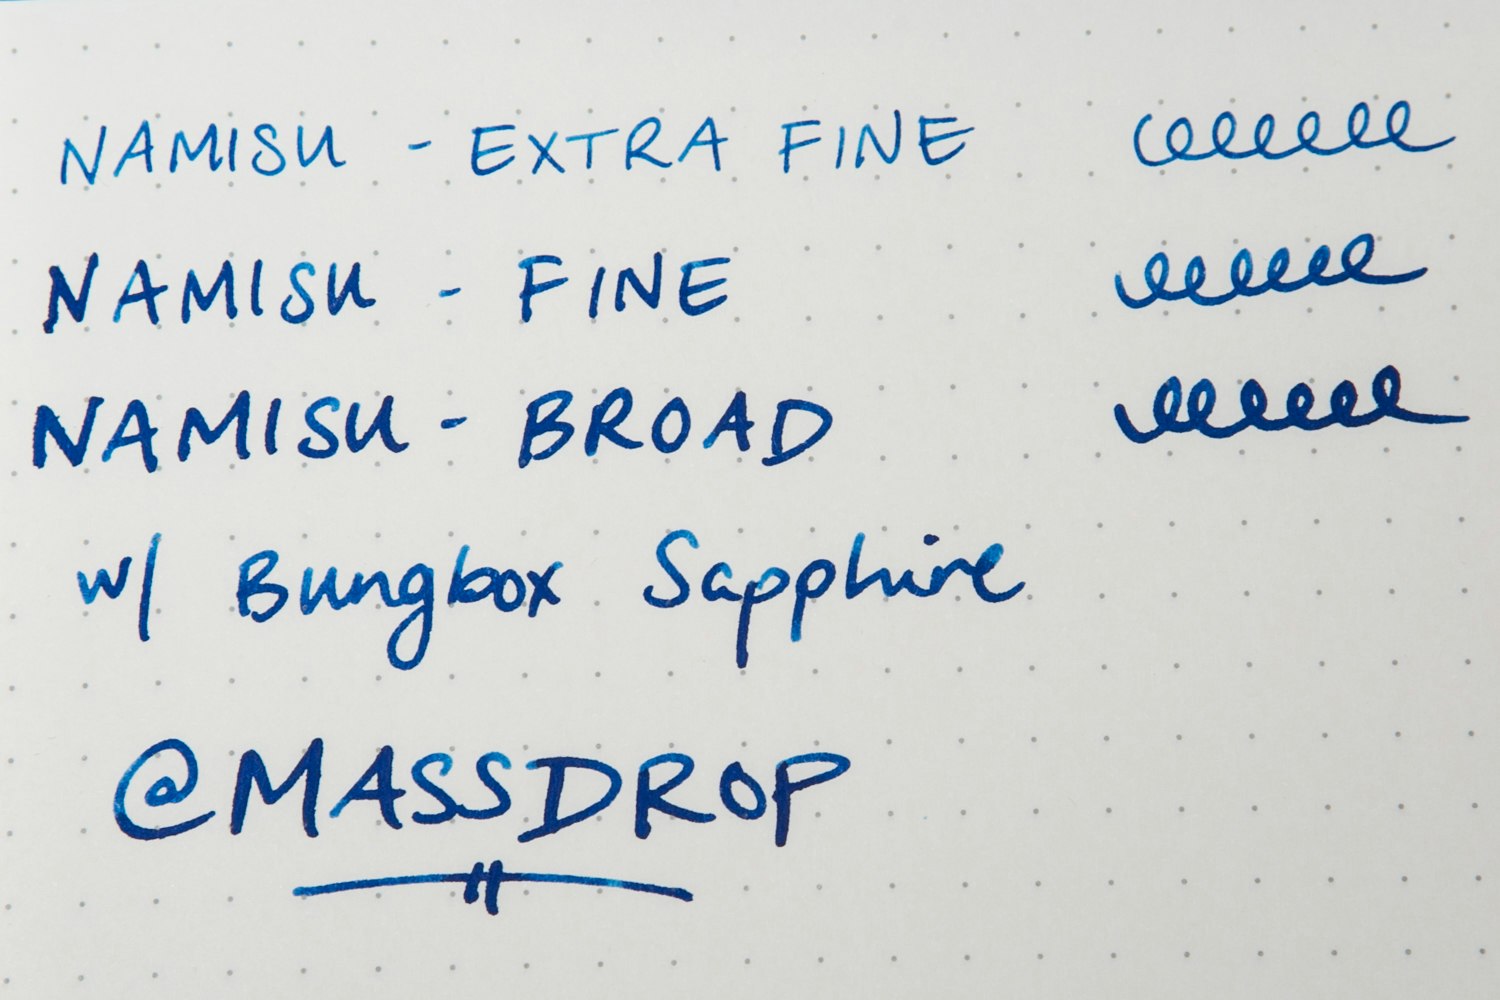 NAMISU - EXTRA FINE
NAMISU - FINE
NAMISU - BROAD
w/ Bungbox Sapphire
@MASSDROP